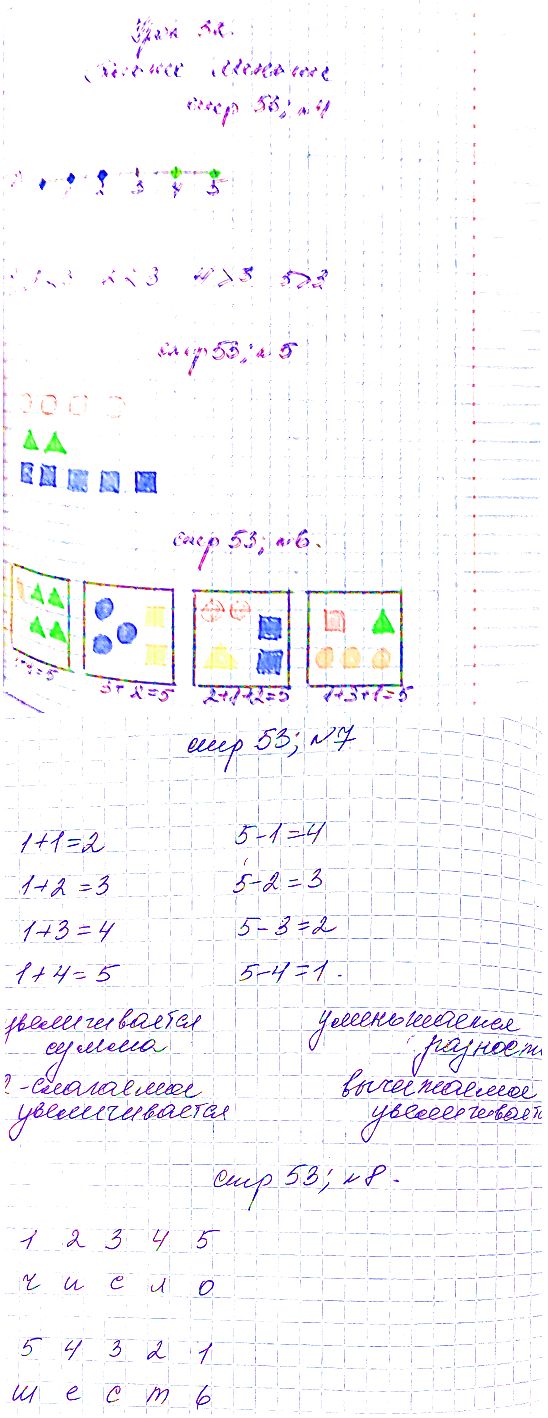 Урок 32.
Больше Меньше
стр 53; №4
1 2 3 4 5
2 < 3 4 > 3 5 > 3
стр 53; №5
стр 53; №6.
1+4=5 3+2=5 2+1+2=5 1+3+1=5
стр 53; №7
1+1=2 5-1=4
1+2=3 5-2=3
1+3=4 5-3=2
1+4=5 5-4=1.
увеличивается уменьшается
сумма разность
2-слагаемое вычитаемое
увеличивается увеличивает
стр 53; №8.
1 2 3 4 5
ч и с л о
5 4 3 2 1
ш е с т ь